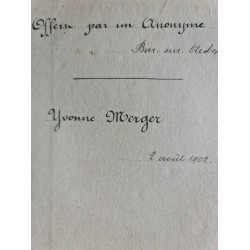 Offert par un Anonyme
Bar. sur
Yvonne Merger
2 août 1902.